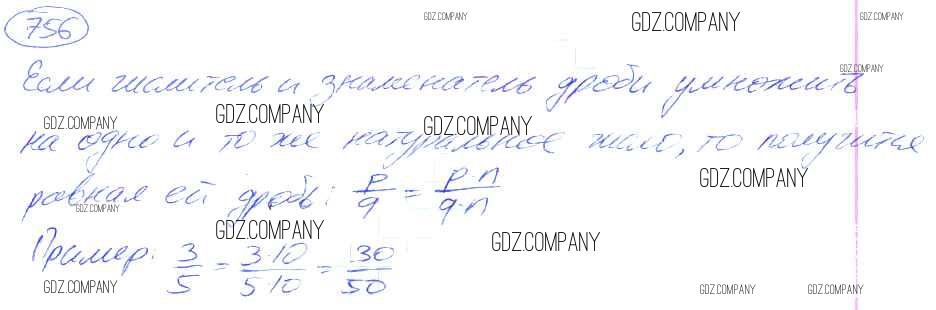 756
Если числитель и знаменатель дроби умножить
на одно и то же натуральное число, то получится
равная ей дробь: p/q = p·n/q·n
Пример: 3/5 = 3·10/5·10 = 30/50
GDZ.COMPANY
GDZ.COMPANY
GDZ.COMPANY
GDZ.COMPANY
GDZ.COMPANY
GDZ.COMPANY
GDZ.COMPANY
GDZ.COMPANY
GDZ.COMPANY
GDZ.COMPANY
GDZ.COMPANY
GDZ.COMPANY
GDZ.COMPANY
GDZ.COMPANY